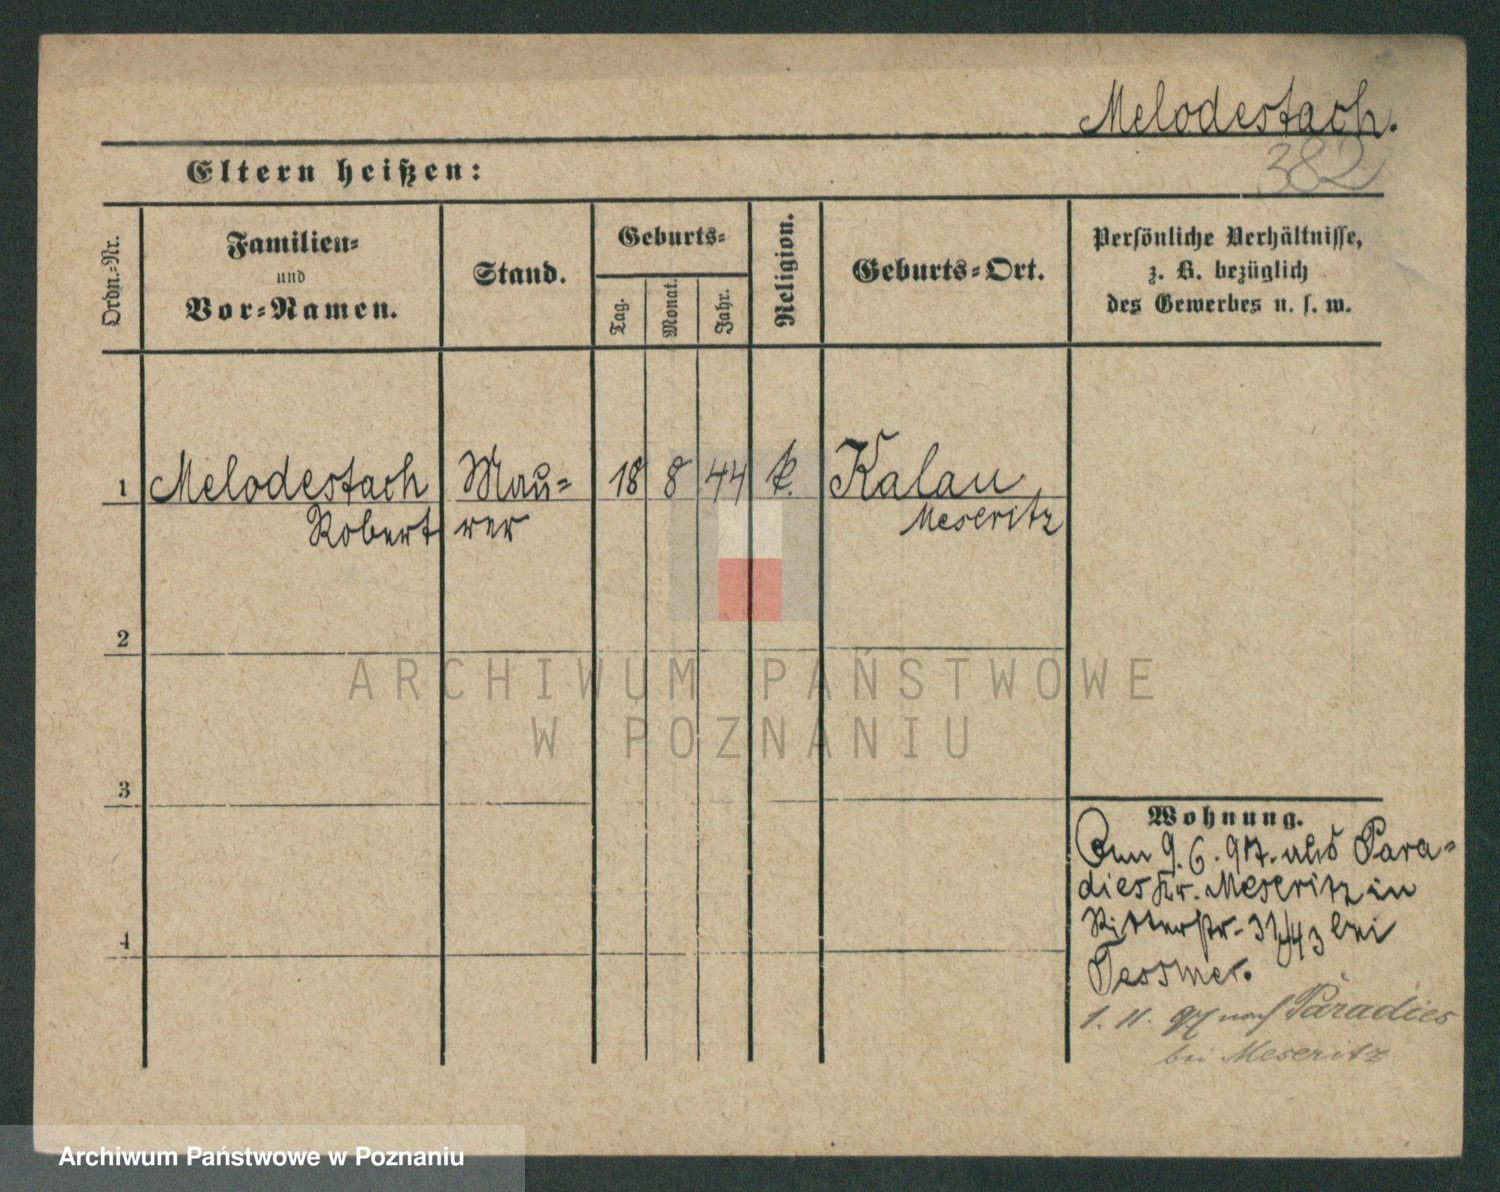 Melodestach.
382
Eltern heißen:
Ordn.-Nr.
Familien-
und
Vor-Namen.
Stand.
Geburts-
Tag.
Monat.
Jahr.
Religion.
Geburts-Ort.
Persönliche Verhältnisse,
z. B. bezüglich
des Gewerbes u. s. w.
1 Melodestach Mau= 18 8 44 k. Kalau
Robert rer Meseritz
2
3
4
ARCHIWUM PAŃSTWOWE
W POZNANIU
Wohnung.
Am 9.6.97. aus Para=
dies Kr. Meseritz in
Ritterstr. bei
Tessmer.
1. 11. 97 nach Paradies
bei Meseritz
Archiwum Państwowe w Poznaniu